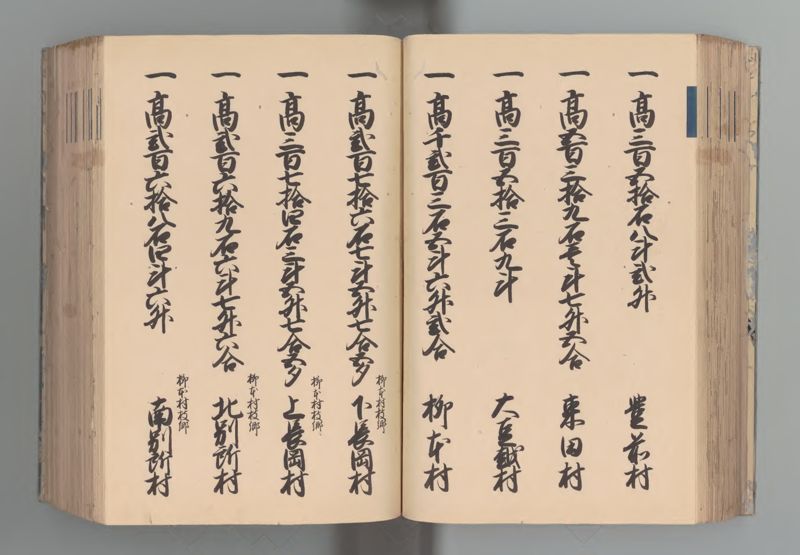 一 高三百五拾石八斗弐升 豊前村
一 高五百三拾九石壱斗七升五合 東田村
一 高三百五拾三石九斗 大豆越村
一 高千弐百三石五斗六升弐合 柳本村
一 高弐百七拾六石七斗五升七合五夕 柳本村枝郷 下長岡村
一 高三百七拾四石三斗五升七合五夕 柳本村枝郷 上長岡村
一 高弐百六拾九石六斗七升六合 柳本村枝郷 北別所村
一 高弐百六拾八石四斗六升 柳本村枝郷 南別所村